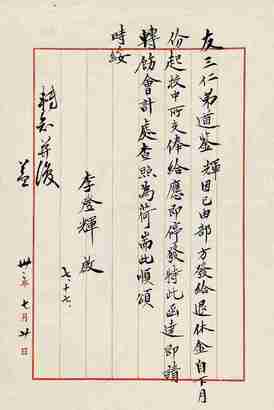 友三仁弟道鉴 輝因已由部方發給退休金自下月
份起校中所支俸給應即停發特此函達即請
轉飭會計處查照為荷耑此順頌
時綏
李登輝 啟
七、十七、
轉知并復
卅 年七月 日